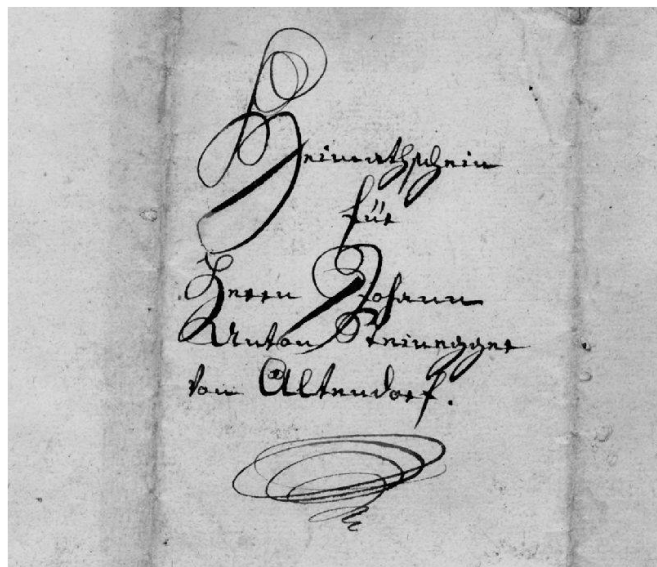 Heimathschein
für
Herrn Johann
Anton Steinegger
von Altendorf.